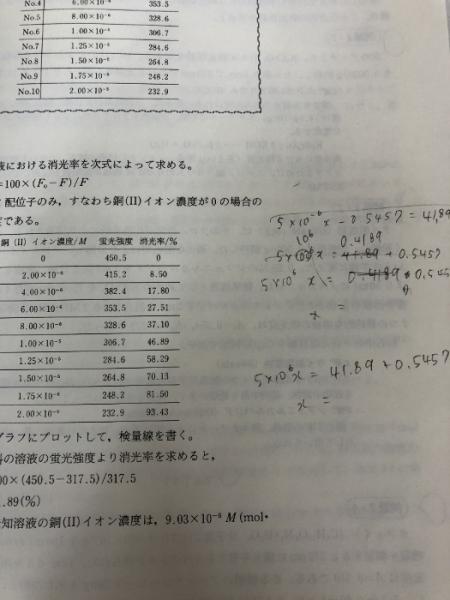 No.4 6.00×10⁻⁶ 353.5
No.5 8.00×10⁻⁶ 328.6
No.6 1.00×10⁻⁵ 306.7
No.7 1.25×10⁻⁵ 284.6
No.8 1.50×10⁻⁵ 264.8
No.9 1.75×10⁻⁵ 248.2
No.10 2.00×10⁻⁵ 232.9
液における消光率を次式によって求める。
=100×(F₀−F)/F
配位子のみ,すなわち銅(II)イオン濃度が0の場合の
度である。
銅(II)イオン濃度/M 蛍光強度 消光率/%
0 450.5 0
2.00×10⁻⁶ 415.2 8.50
4.00×10⁻⁶ 382.4 17.80
6.00×10⁻⁶ 353.5 27.51
8.00×10⁻⁶ 328.6 37.10
1.00×10⁻⁵ 306.7 46.89
1.25×10⁻⁵ 284.6 58.29
1.50×10⁻⁵ 264.8 70.13
1.75×10⁻⁵ 248.2 81.50
2.00×10⁻⁵ 232.9 93.43
グラフにプロットして,検量線を書く。
料の溶液の蛍光強度より消光率を求めると,
00×(450.5−317.5)/317.5
1.89(%)
知溶液の銅(II)イオン濃度は,9.03×10⁻⁶ M(mol・
5×10⁻⁶x − 0.5457 = 41.89
10⁶ 0.4189
x = 41.89 + 0.5457
5×10⁶ x = 0.4189
x =
5×10⁶x = 41.89 + 0.5457
x =